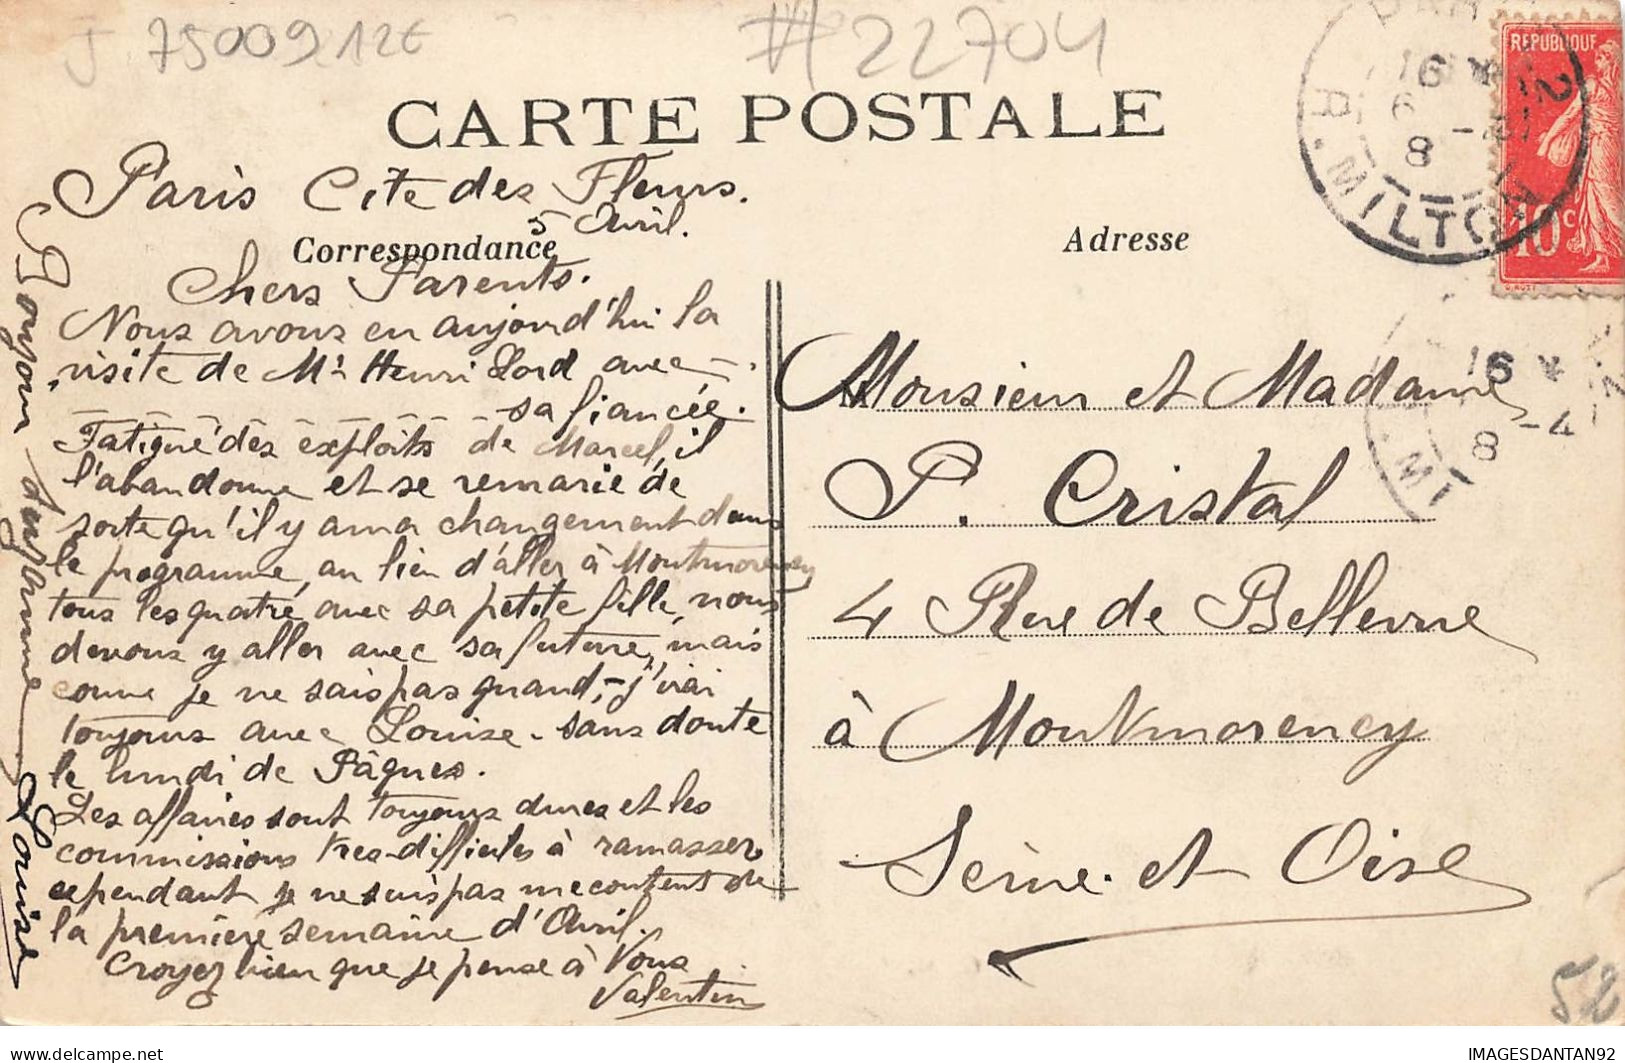 J 75009 12€
#22704
CARTE POSTALE
Paris Cite des Fleurs.
5 Avril.
Correspondance
Chers Parents.
Nous avons eu aujourd'hui la
visite de Mr Henri Lord avec
sa fiancée.
Fatigué des exploits de Marcel, il
l'abandonne et se remarie de
sorte qu'il y aura changement dans
le programme, au lieu d'aller à Montmorency
tous les quatre avec sa petite fille, nous
devons y aller avec sa future, mais
comme je ne sais pas quand, j'irai
toujours avec Louise. sans doute
le lundi de Pâques.
Les affaires sont toujours dures et les
commissions tres difficiles à ramasser
cependant je ne suis pas mecontent de
la première semaine d'Avril.
Croyez bien que je pense à Vous
Valentin
Bonjour
Louise
Adresse
Monsieur et Madame
P. Cristal
4 Rue de Bellevue
à Montmorency
Seine et Oise
REPUBLIQUE
10c
16
6
8
R. MILTON
16 *
8 -4
MI
52
IMAGESDANTAN92